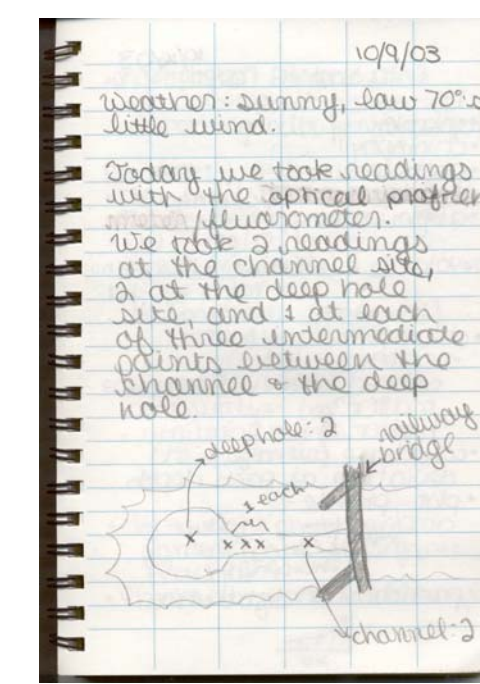 10/9/03
Weather: sunny, low 70°s
little wind.
Today we took readings
with the optical profiler
/fluorometer.
We took 2 readings
at the channel site,
2 at the deep hole
site, and 1 at each
of three intermediate
points between the
channel & the deep
hole.
deep hole: 2
railway
bridge
1 each
channel: 2